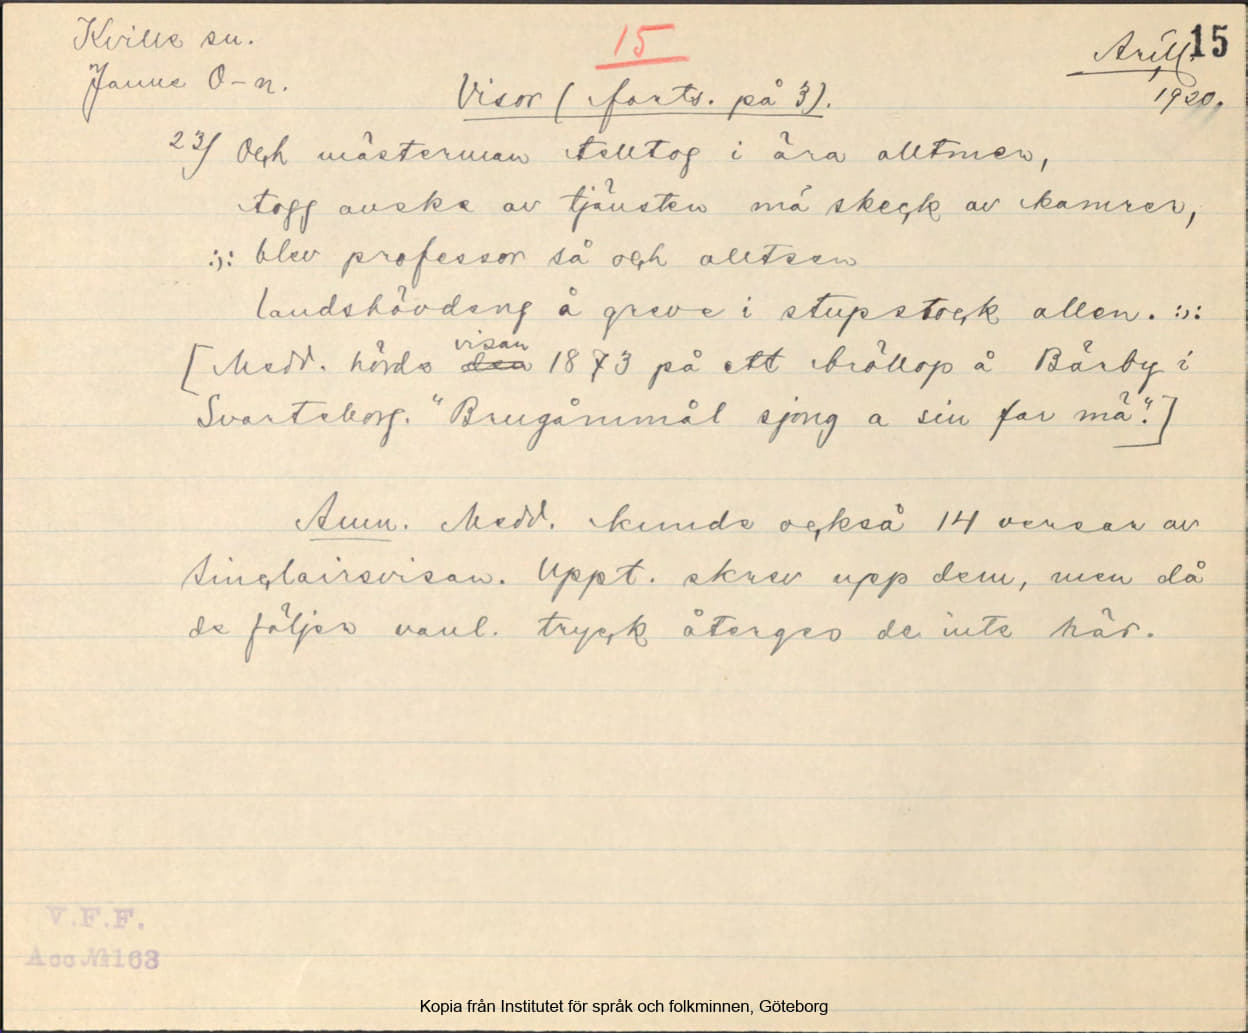 Kville sn.
Janne O-n.
15
Arill
15
1920.
Visor (forts. på 3).
23/ Och mästerman telltog i ära alltmer,
togg avske av tjänsten må skeck av kamrer,
:,: blev professor så och alltsen
landshövdeng å greve i stupstock allen. :,:
[Medd. hörde den visan 1873 på ett bröllop å Bärby i
Svarteborg. "Brugåmmål sjong a sin far mä".]
Anm. Medd. kunde också 14 verser av
Sinclairsvisan. Uppt. skrev upp dem, men då
de följer vanl. tryck återges de inte här.
V.F.F.
Acc.№163
Kopia från Institutet för språk och folkminnen, Göteborg